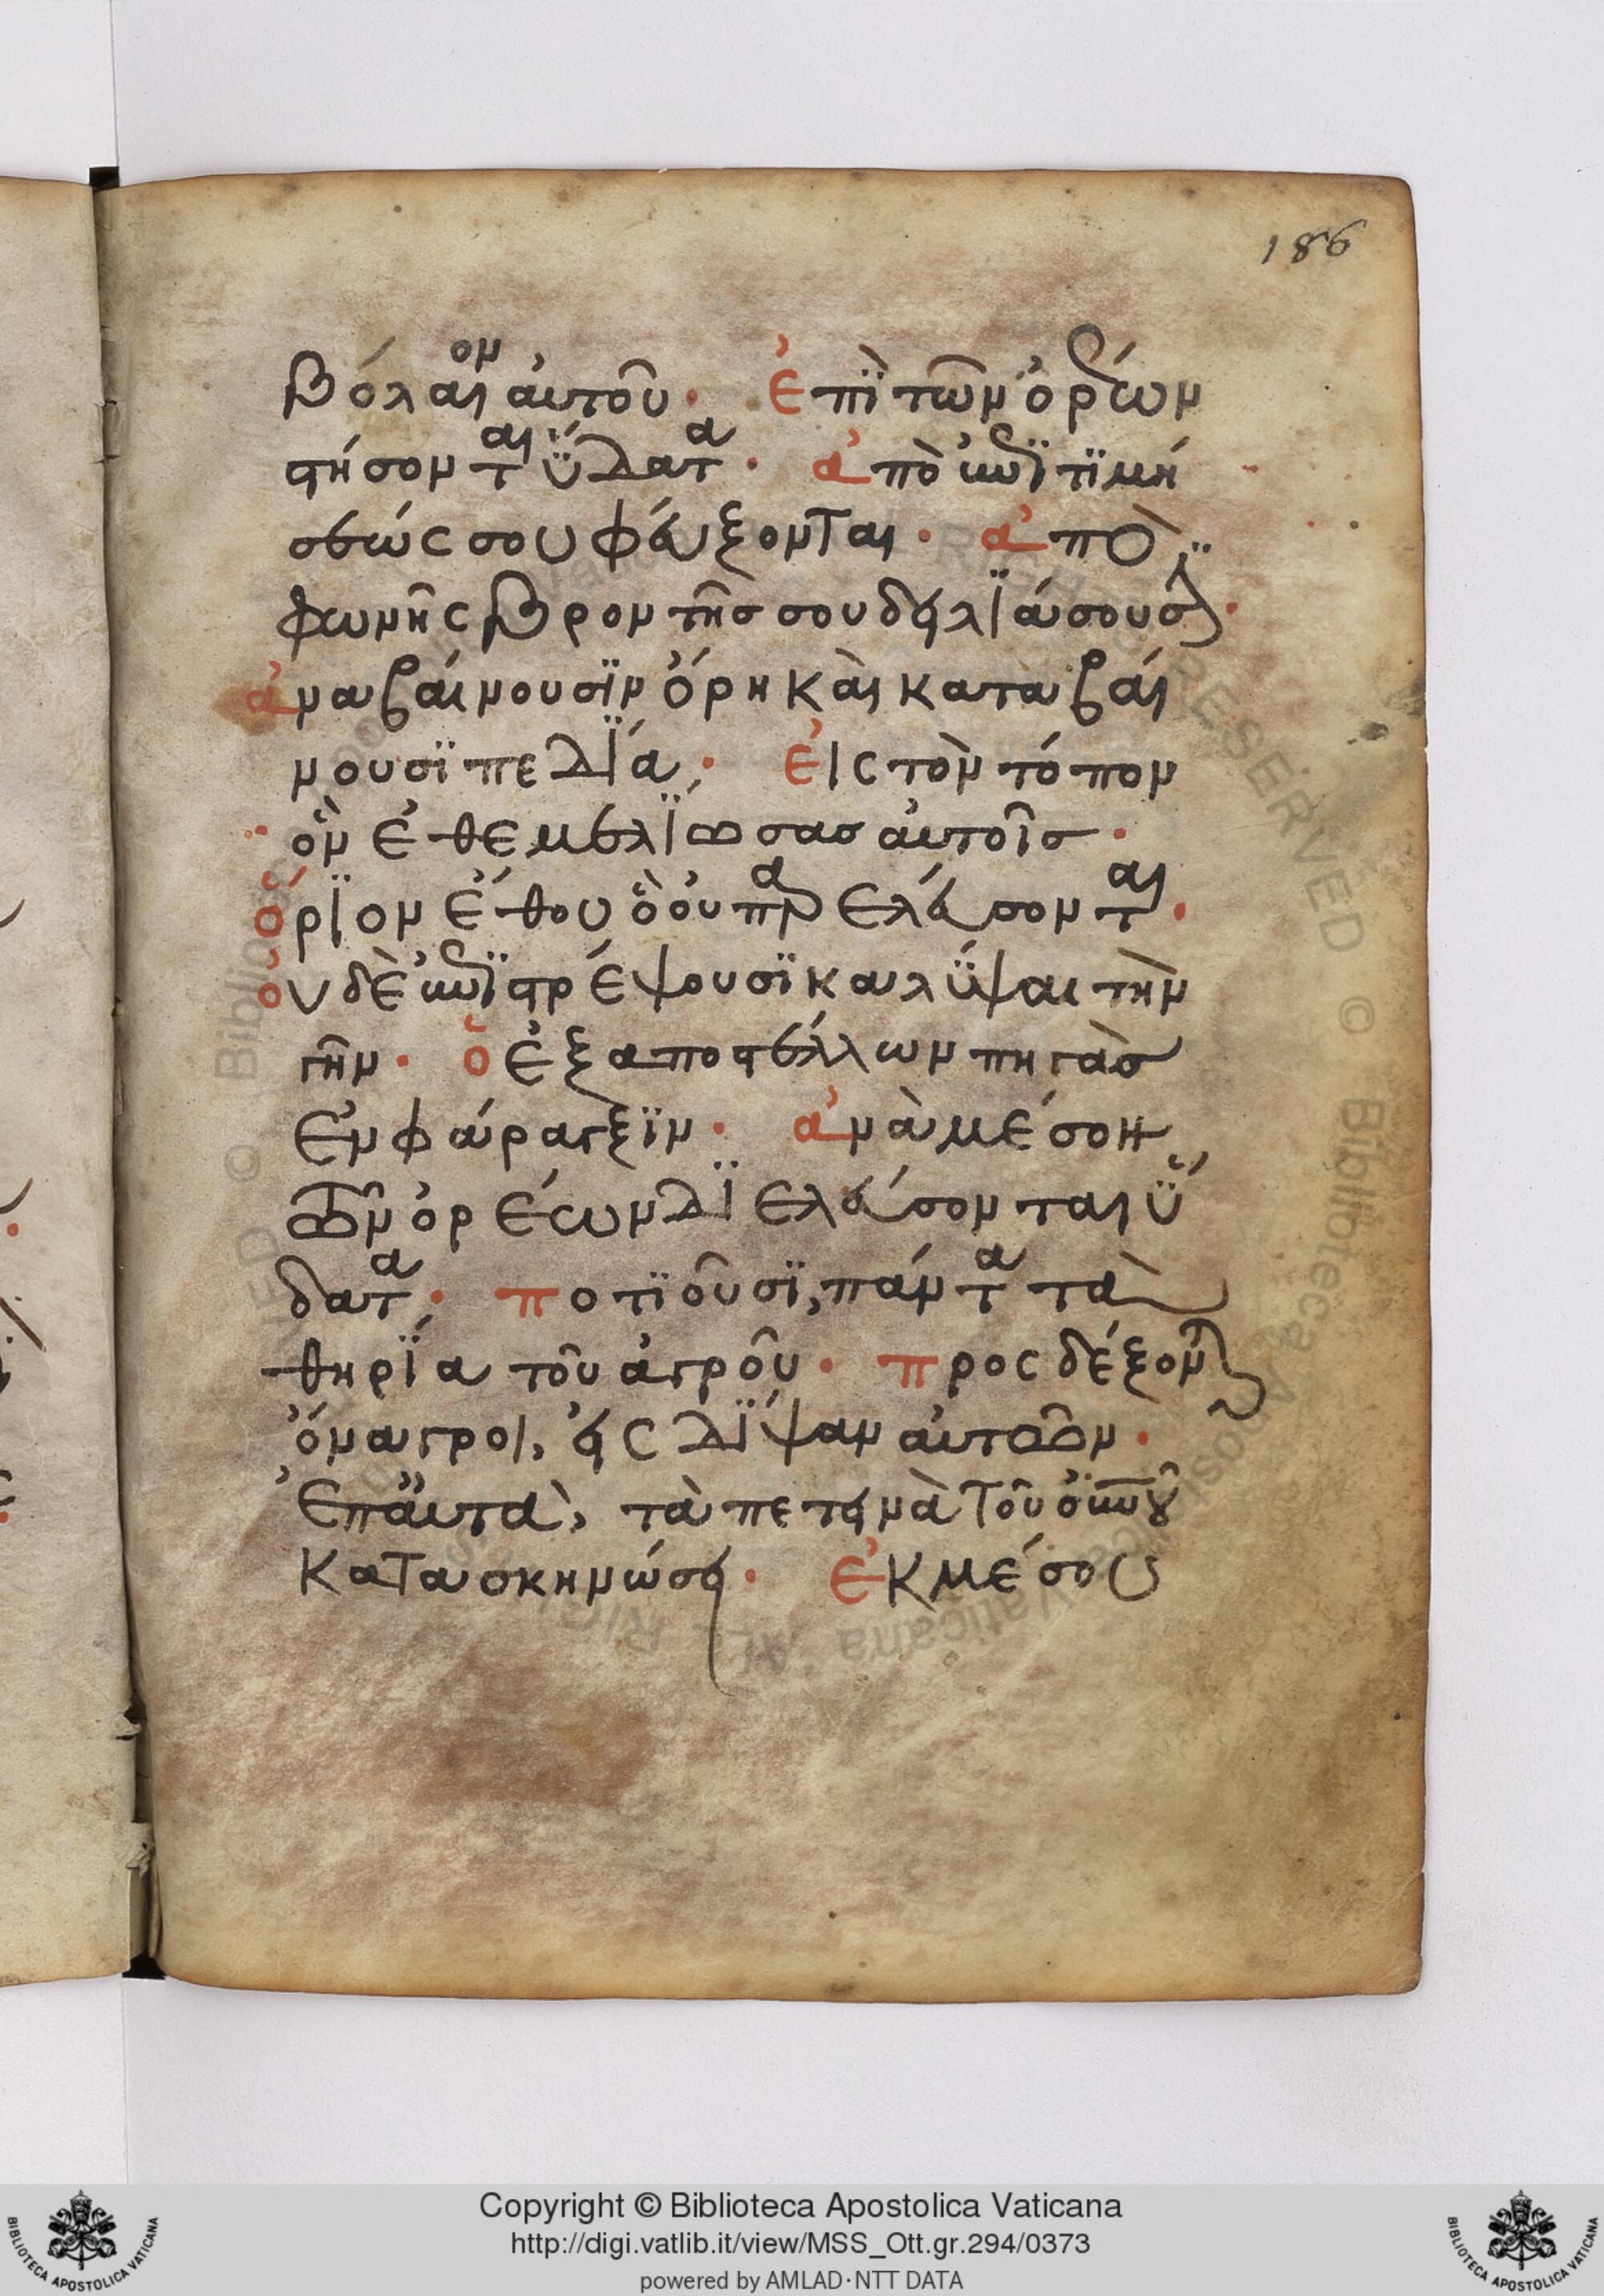 186
βόλαιον αὐτοῦ· ἐπῒ τῶν ὀρέων
στήσονται ὕδατα· ἀπὸ ἐπιτϊμή
σεώς σου φεύξονται· ἀπὸ
φωνῆς βροντῆσ σου δειλϊάσουσιν·
ἀναβαίνουσϊν ὄρη καὶ καταβαί
νουσϊ πεδΐα· εἰς τὸν τόπον
ὃν ἐθεμελΐωσασ αὐτοῖσ·
ὅρϊον ἔθου ὃ οὐ παρελεύσονται·
οὐδὲ ἐπιστρέψουσϊ καλΰψαι τὴν
γῆν· ὁ ἐξαποστέλλων πηγὰσ
ἐν φάραγξϊν· ἀνὰ μέσον
τῶν ὀρέων δϊελεύσονται ὕ
δατα· ποτϊοῦσϊ, πάντα τὰ
θηρΐα τοῦ ἀγροῦ· προς δέξονται
ὄναγροι, εἰς δΐψαν αὐτῶν·
ἐπ αὐτὰ, τὰ πετεινὰ τοῦ οὐνοῦ
κατασκηνώσει· ἐκ μέσου
Copyright © Biblioteca Apostolica Vaticana
http://digi.vatlib.it/view/MSS_Ott.gr.294/0373
powered by AMLAD·NTT DATA